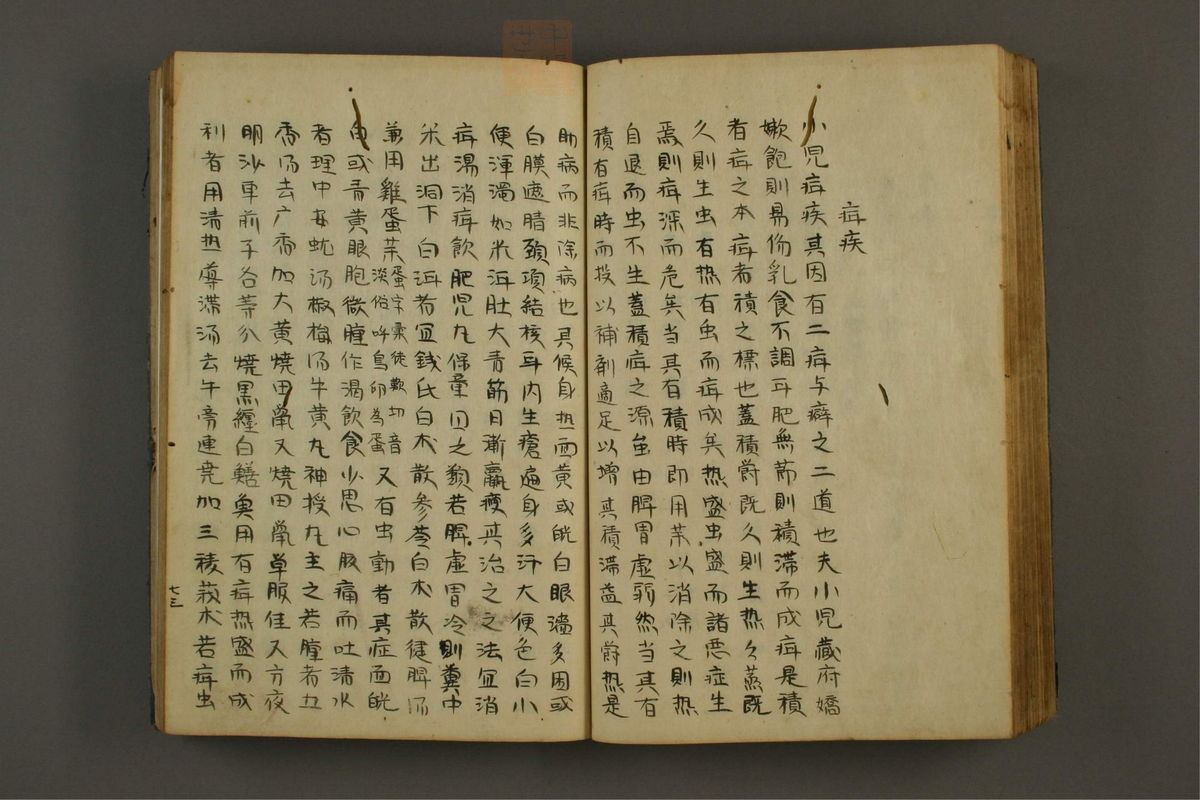 疳疾
小児疳疾其因有二病与癖之二道也夫小児藏府嬌
嫩飽則易傷乳食不調耳肥無節則積滞而成疳是積
者疳之本疳者積之標也蓋積欝既久則生热久蒸既
久則生虫有热有虫而疳成矣热盛虫盛而諸悪症生
焉則疳深而危矣当其有積時即用茉以消除之則热
自退而虫不生蓋積疳之源虽由脾胃虚弱然当其有
積有疳時而投以補剤適足以増其積滞益其欝热是
助病而非除病也其候身热面黄或㿠白眼澁多困或
白膜遮睛頚項結核耳内生瘡遍身多汗大便色白小
便渾濁如米泔肚大青筋日漸羸痩其治之之法宜消
疳湯消疳飲肥児丸保童円之類若脾虚胃冷則糞中
米出洞下白泔者宜銭氏白朮散参苓白朮散健脾湯
兼用雞蛋茉蛋字彙徒歎切音淡俗呼鳥卵為蛋又有虫動者其症面㿠
白或青黄眼胞微腫作渇飲食少思心腹痛而吐清水
者理中安蚘汤椒梅汤牛黄丸神授丸主之若腫者五
香汤去广香加大黄焼田螺又焼田螺草服佳又方夜
明沙車前子各等分焼黒纏白鱔奥用有疳热盛而成
利者用清热導滞汤去牛旁連壳加三稜莪朮若疳虫
七三